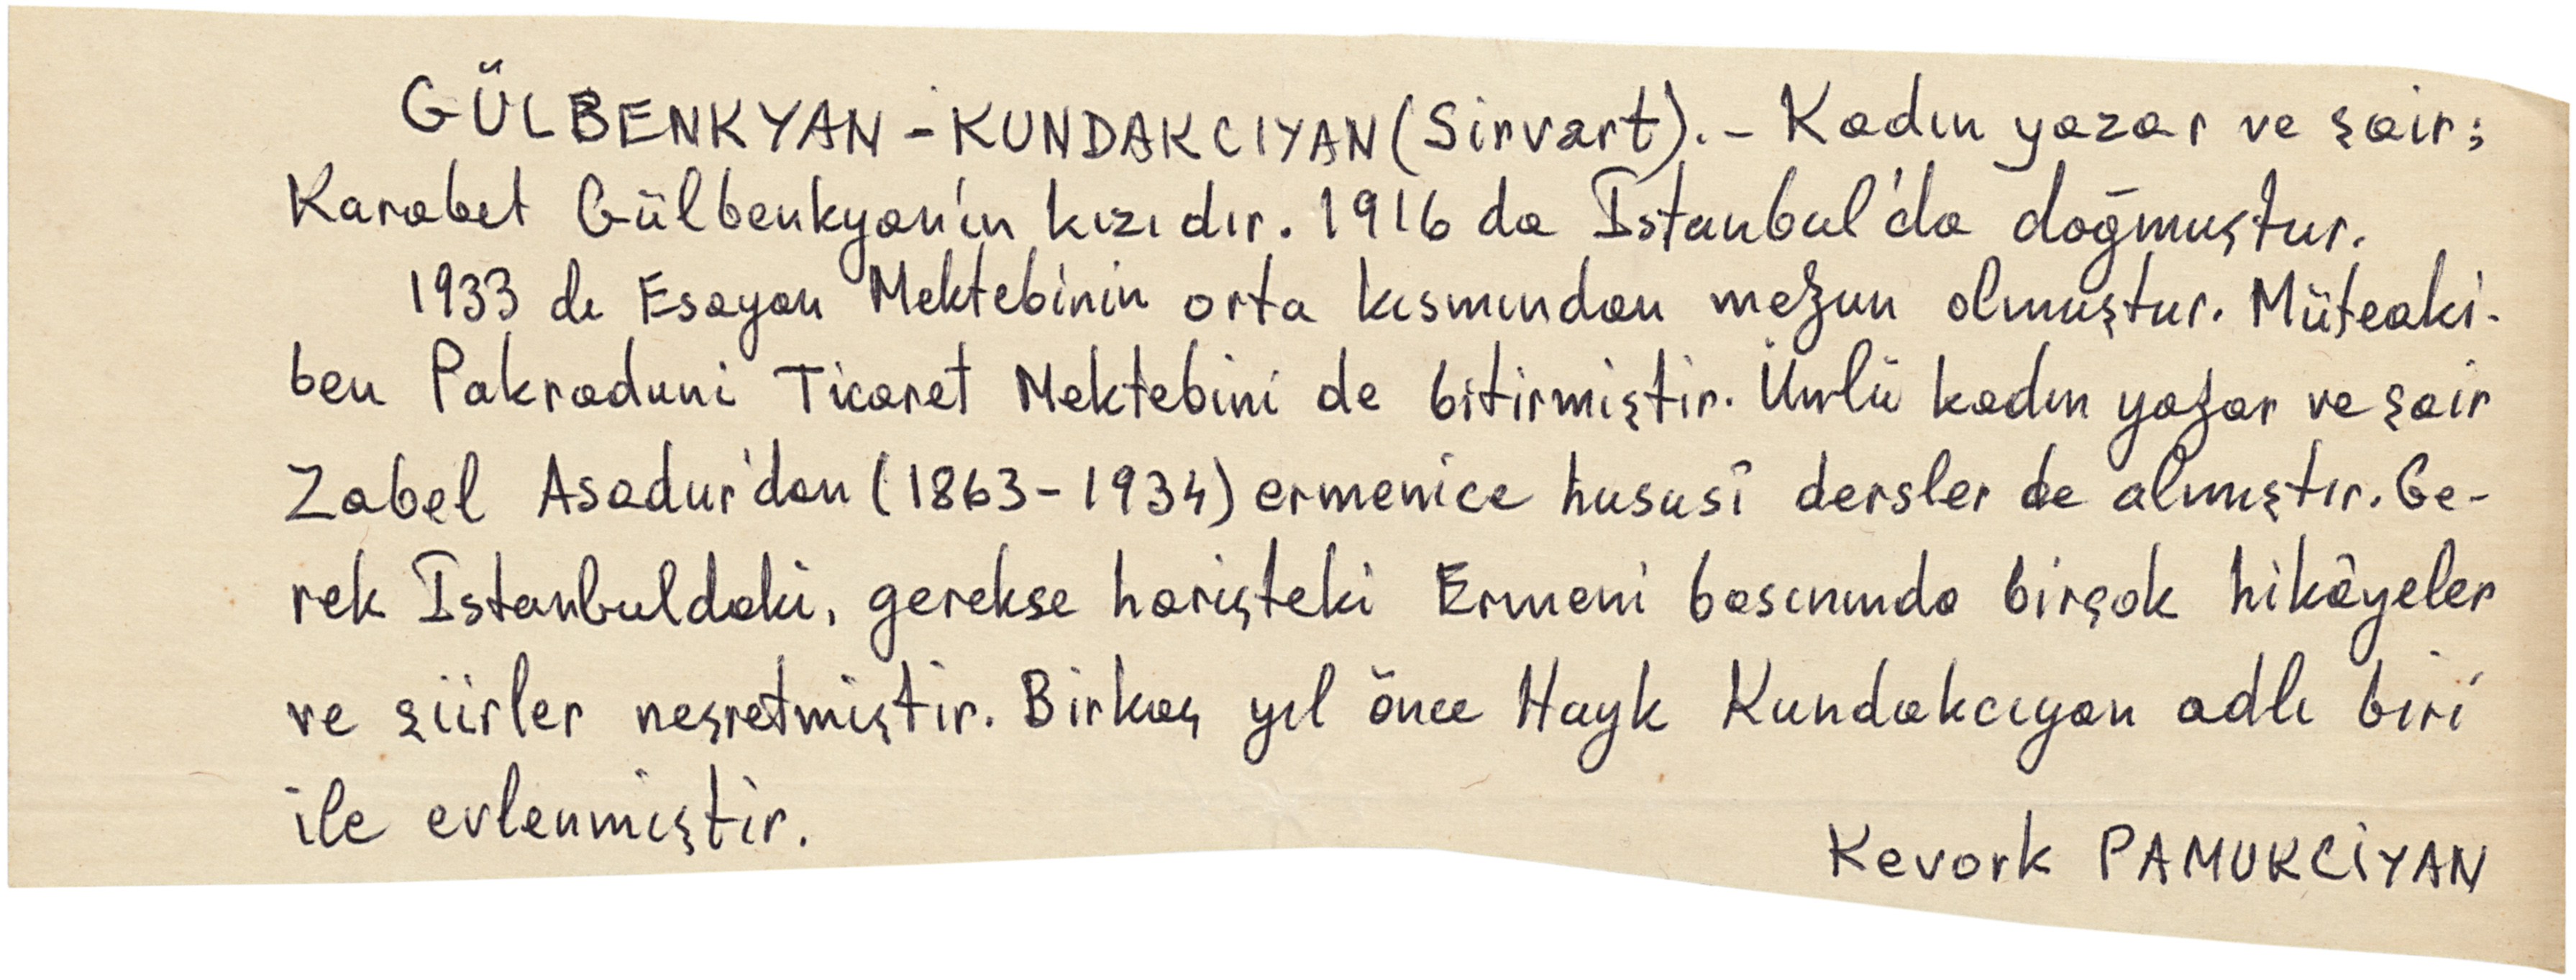 GÜLBENKYAN-KUNDAKCIYAN (Sirvart). - Kadın yazar ve şair;
Karabet Gülbenkyan'ın kızıdır. 1916 da İstanbul'da doğmuştur.
1933 de Esayan Mektebinin orta kısmından mezun olmuştur. Müteaki-
ben Pakraduni Ticaret Mektebini de bitirmiştir. Ünlü kadın yazar ve şair
Zabel Asadur'dan (1863-1934) ermenice hususî dersler de almıştır. Ge-
rek İstanbuldaki, gerekse hariçteki Ermeni basınında birçok hikâyeler
ve şiirler neşretmiştir. Birkaç yıl önce Hayk Kundakcıyan adlı biri
ile evlenmiştir.
Kevork PAMUKCİYAN